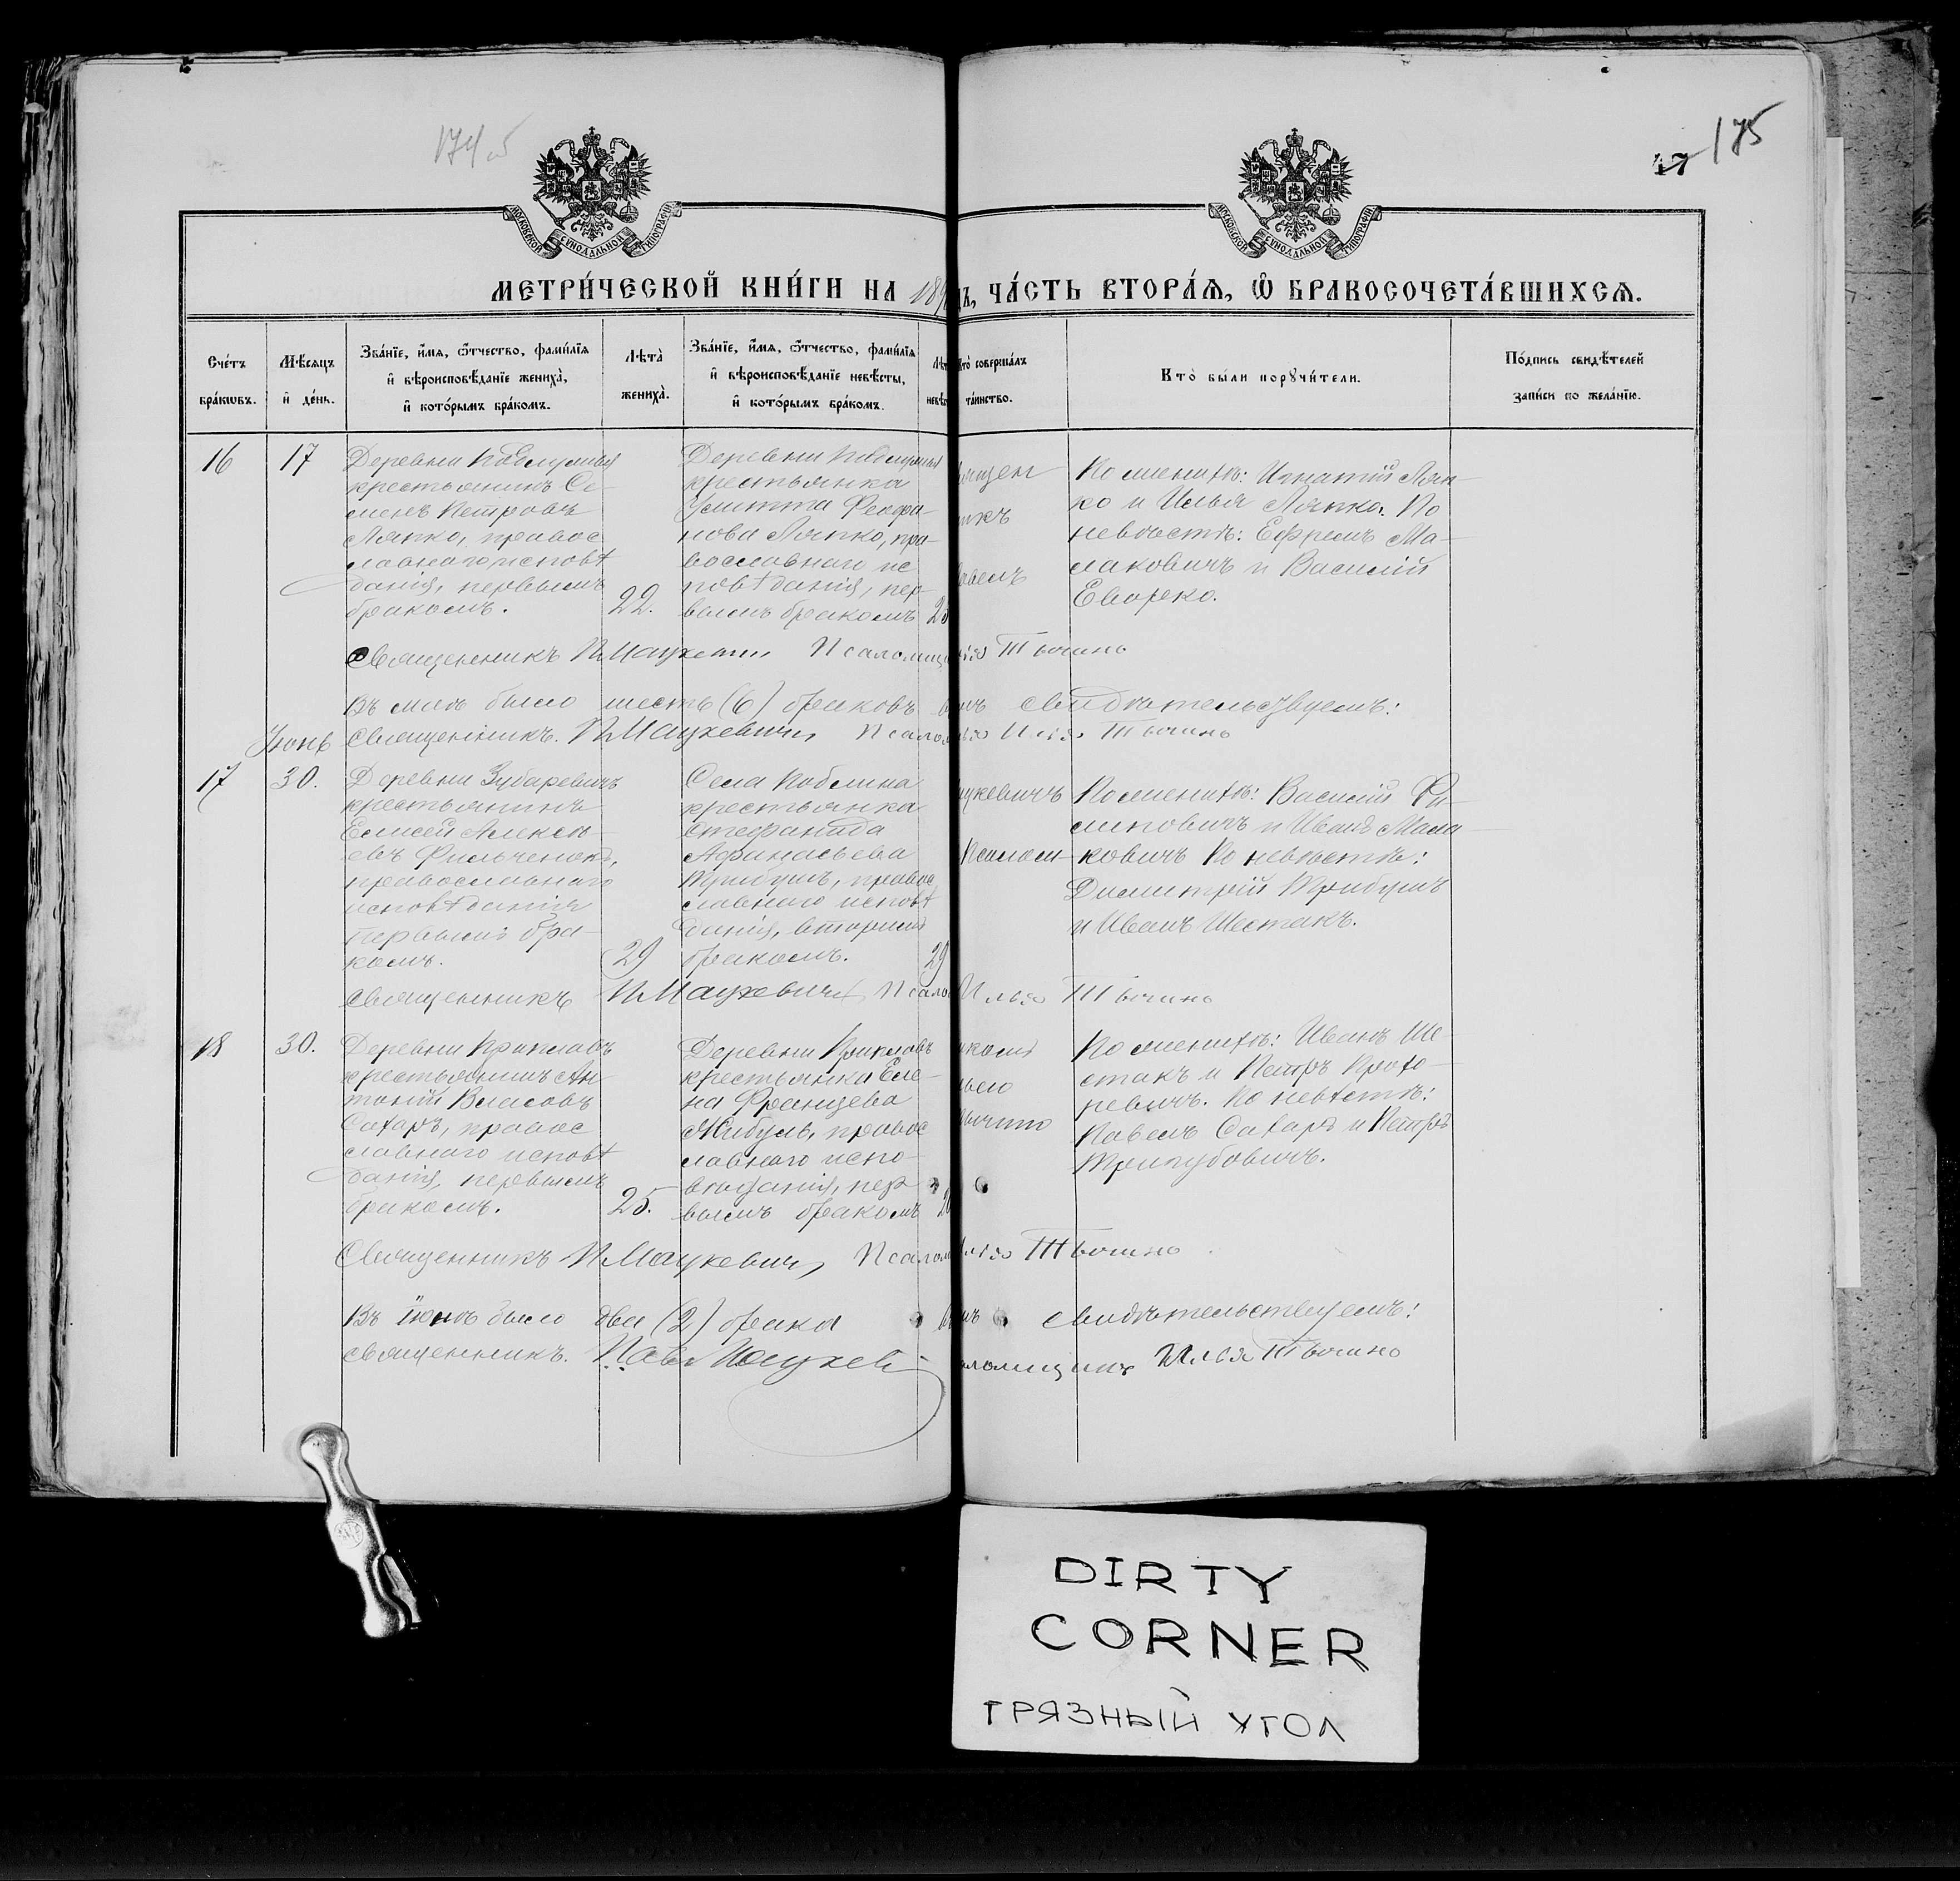 175
МОСКОВСКОЙ СУНОДАЛЬНОЙ ТИПОГРАФІИ
МОСКОВСКОЙ СУНОДАЛЬНОЙ ТИПОГРАФІИ
МЕТРИ́ЧЕСКОЙ КНИ́ГИ НА 189 ЧА́СТЬ ВТОРА́Я, Ѽ БРАКОСОЧЕТА́ВШИХСЯ.
Сче́тъ бра́кѡвъ.
Мѣ́сяцъ и҆ де́нь.
Зва́нїе, и҆́мя, ѻ҆́тчество, фами́лїя
и҆ вѣроисповѣ́данїе жениха̀,
и҆ кото́рымъ бра́комъ.
Лѣта̀ жениха̀.
Зва́нїе, и҆́мя, ѻ҆́тчество, фами́лїя
и҆ вѣроисповѣ́данїе невѣ́сты,
и҆ кото́рымъ бра́комъ.
Кто̀ соверша́лъ та́инство.
Кто̀ бы́ли порꙋчи́тели.
По́дпись свидѣ́телей
за́писи по жела́нїю.
16
17
Деревни
крестьянинъ Се-
менъ Петровъ
Ляпко, правос
лавнаго исповѣ
данія, первымъ
бракомъ.
22.
Деревни
крестьянка
Улитта Феофа-
нова Ляпко, пра-
вославнаго ис
повѣданія, пер-
вымъ бракомъ
По женихѣ: Игнатій Ляп-
ко и Илья Ляпко. По
невѣстѣ: Ефремъ Ма-
лаковичъ и Василій
Священникъ П Мацкевичъ Илья Тычино
Въ маѣ было шесть (6) браковъ свидѣтельствуемъ:
Священникъ. П Мацкевичъ Илья Тычино
Іюнь
17
30.
Деревни Зубаревичъ
крестьянинъ
Елисей Алексѣ-
евъ Фильченокъ,
православнаго
исповѣданія
первымъ бра-
комъ.
29
Села
крестьянка
Стефанида
Афанасьева
Трибушъ, правос
лавнаго исповѣ
данія, вторымъ
бракомъ.
29
По женихѣ: Василій Фи-
липовичъ и Иванъ Мала-
ковичъ По невѣстѣ:
Димитрій Трибушъ
и Иванъ Шестакъ.
Священникъ П Мацкевичъ Илья Тычино
18
30.
Деревни
крестьянинъ Ан-
тоній Власовъ
Сахаръ, правос
лавнаго исповѣ
данія, первымъ
бракомъ.
25.
Деревни
крестьянка Еле-
на Францева
Жибуль, правос
лавнаго испо-
вѣданія, пер
вымъ бракомъ
По женихѣ: Иванъ Ше-
стакъ и Петръ Прохо-
ревичъ. По невѣстѣ:
Павелъ Сахаръ и Петръ
Священникъ П Мацкевичъ Илья Тычино
Въ іюнѣ было два (2) брака свидѣтельствуемъ:
Священникъ. Илья Тычино
DIRTY
CORNER
ГРЯЗНЫЙ УГОЛ